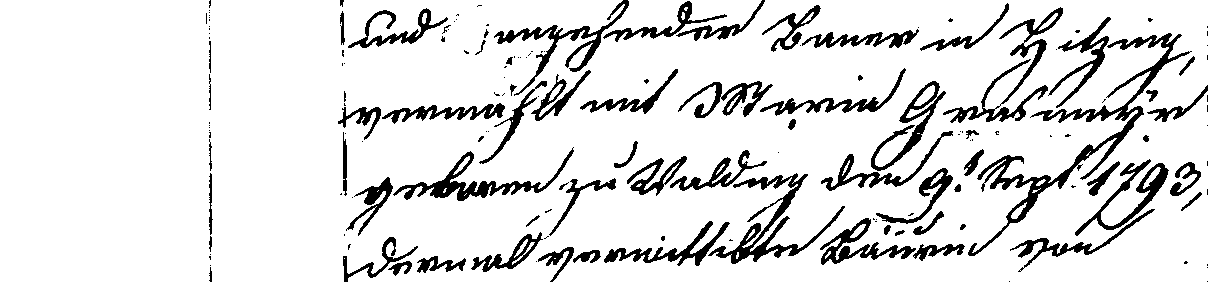 und angehender Bauer in Hitzing,
vermählt mit Maria Grasmayr
geboren zu Walding den 9t Sept 1793,
dermal verwittibte Bäurin von